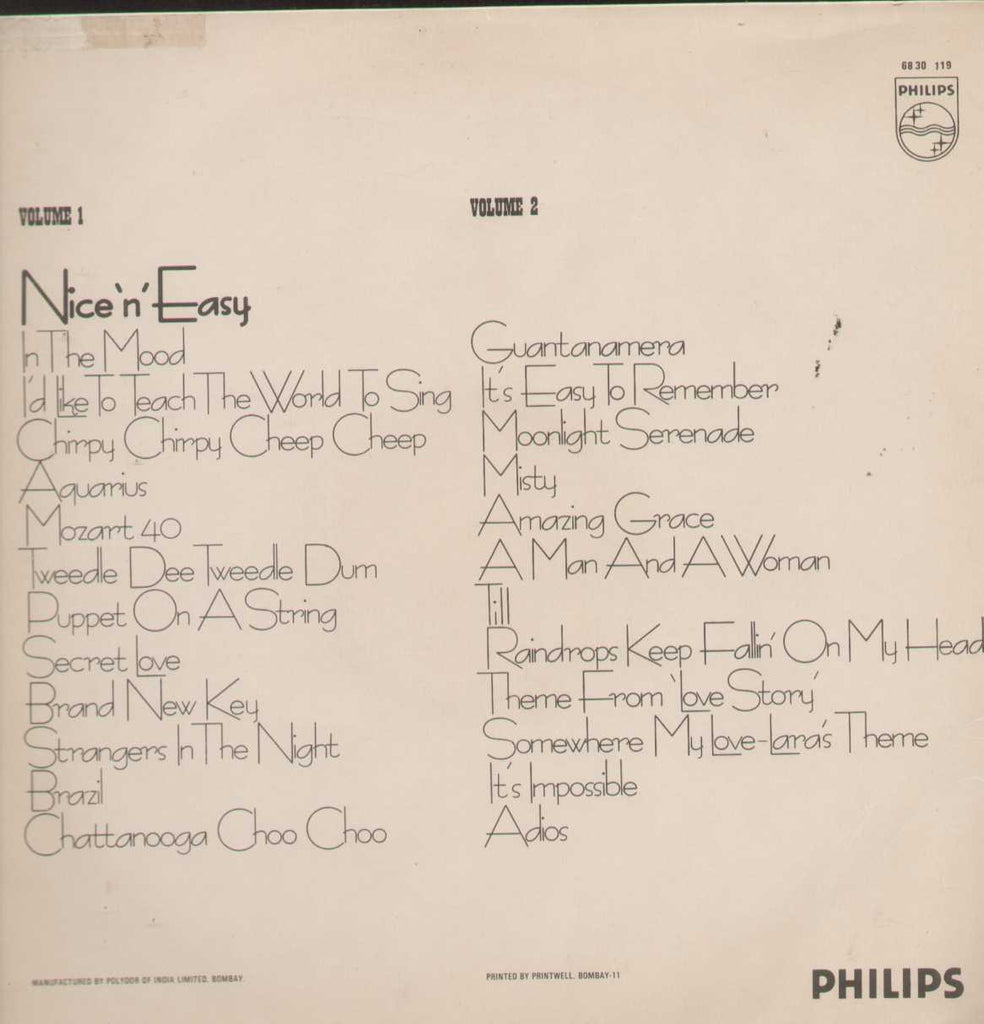 6830 119
PHILIPS
VOLUME 1
Nice 'n' Easy
In The Mood
I'd Like To Teach The World To Sing
Chirpy Chirpy Cheep Cheep
Aquarius
Mozart 40
Tweedle Dee Tweedle Dum
Puppet On A String
Secret Love
Brand New Key
Strangers In The Night
Brazil
Chattanooga Choo Choo
VOLUME 2
Guantanamera
It's Easy To Remember
Moonlight Serenade
Misty
Amazing Grace
A Man And A Woman
Till
Raindrops Keep Fallin' On My Head
Theme From 'Love Story'
Somewhere My Love-Lara's Theme
It's Impossible
Adios
MANUFACTURED BY POLYDOR OF INDIA LIMITED, BOMBAY.
PRINTED BY PRINTWELL, BOMBAY-11
PHILIPS